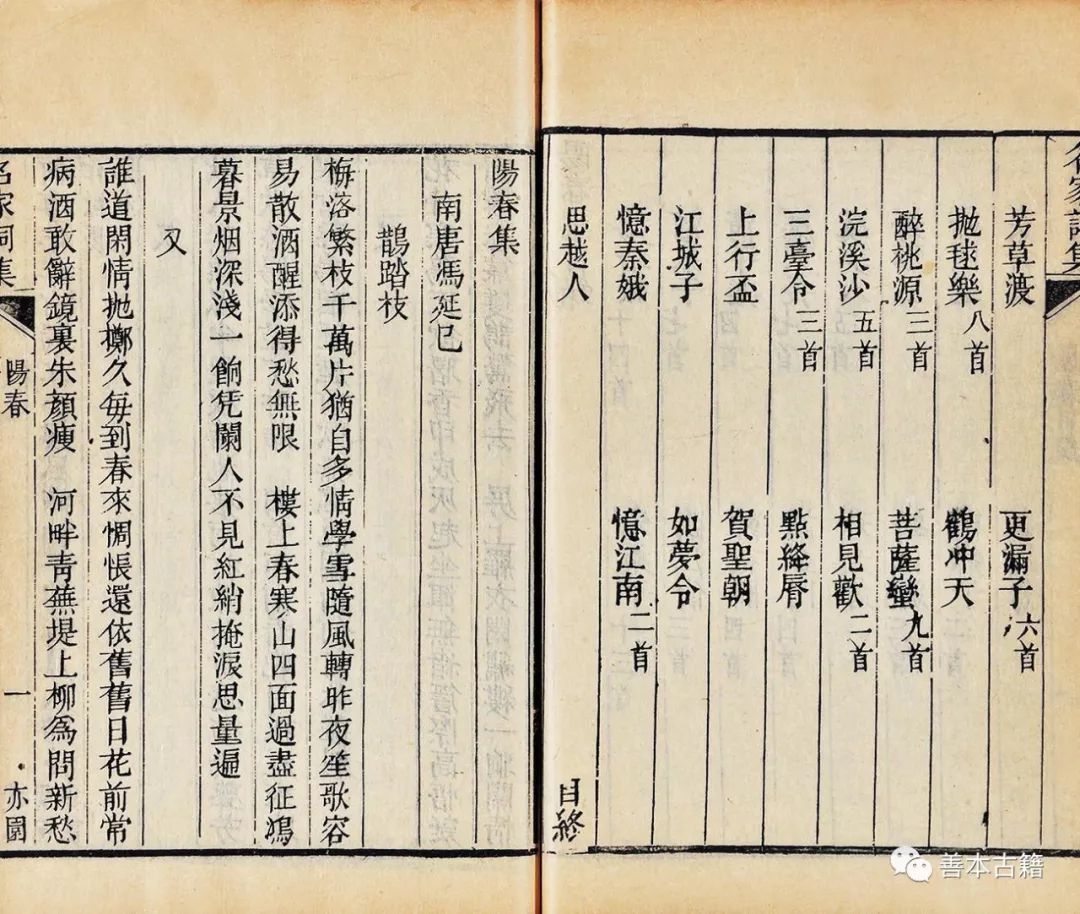 名家詞集
芳草渡 更漏子六首
拋毬樂八首 鶴冲天
醉桃源三首 菩薩蠻九首
浣溪沙五首 相見歡二首
三臺令三首 點絳唇
上行盃 賀聖朝
江城子 如夢令
憶秦娥 憶江南二首
思越人 目終
陽春集
南唐馮延巳
鵲踏枝
梅落繁枝千萬片猶自多情學雪隨風轉昨夜笙歌容
易散酒醒添得愁無限 樓上春寒山四面過盡征鴻
暮景烟深淺一餉凭闌人不見紅綃掩淚思量遍
又
誰道閑情拋擲久每到春來惆悵還依舊舊日花前常
病酒敢辭鏡裏朱顏瘦 河畔青蕪堤上柳爲問新愁
名家詞集 陽春 一 亦園
善本古籍